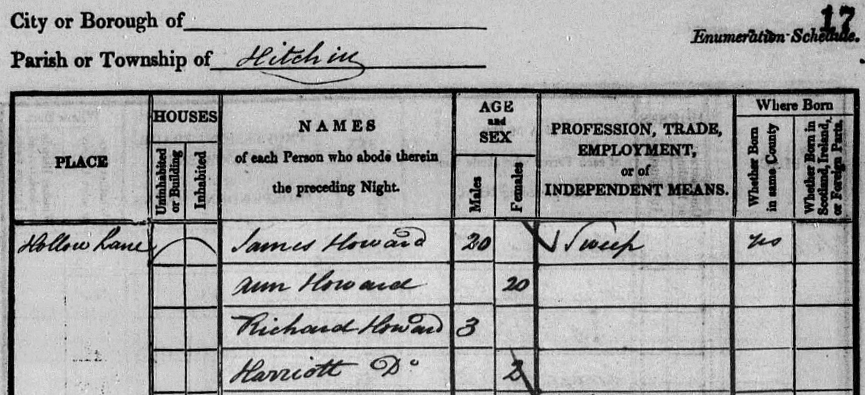 City or Borough of
17
Enumeration Schedule.
Parish or Township of Hitchin
PLACE
HOUSES
Uninhabited or Building
Inhabited
NAMES
of each Person who abode therein
the preceding Night.
AGE
and
SEX
Males
Females
PROFESSION, TRADE,
EMPLOYMENT,
or of
INDEPENDENT MEANS.
Where Born
Whether Born
in same County
Whether Born in
Scotland, Ireland,
or Foreign Parts.
Hollow Lane James Howard 20 Sweep yes
Ann Howard 20
Richard Howard 3
Harriott Do 2